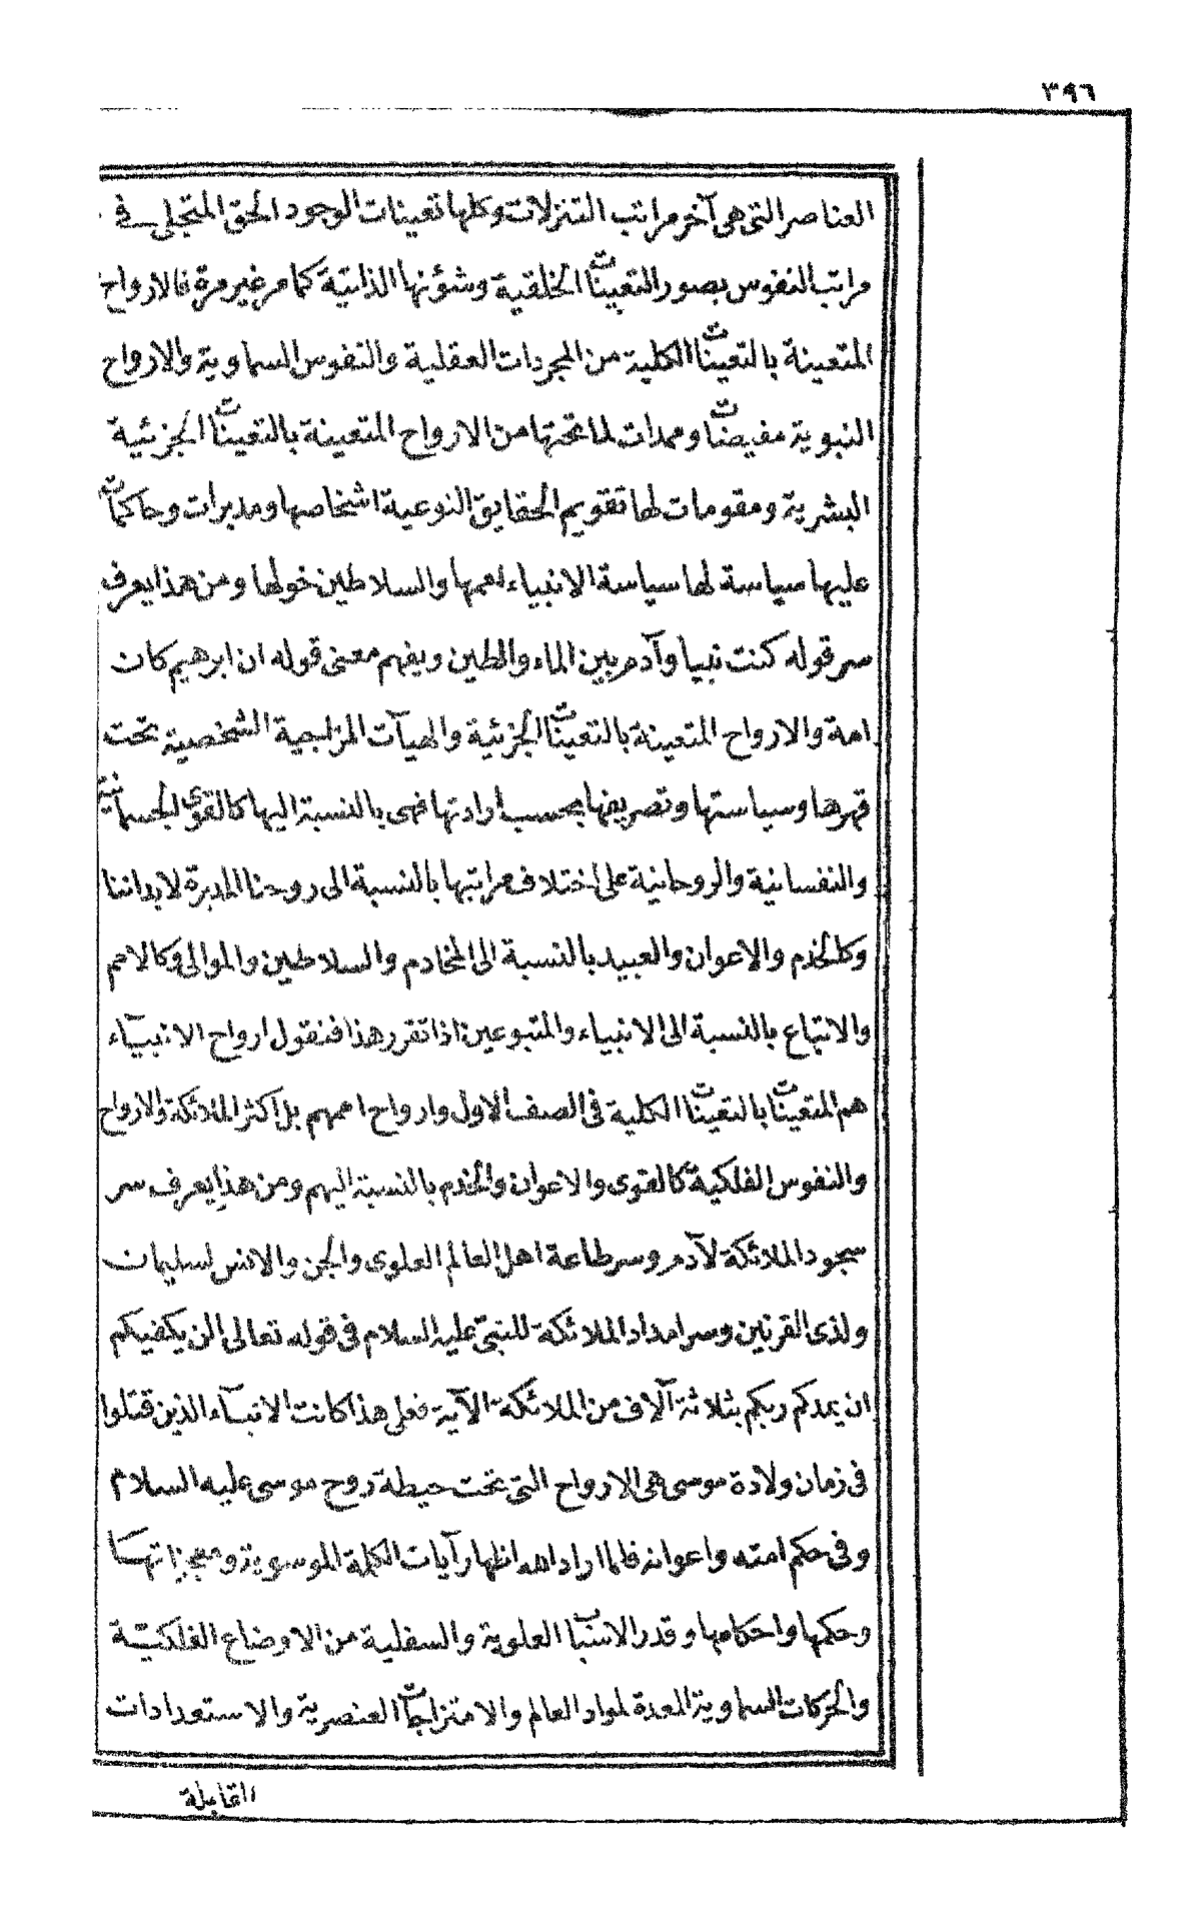 ٣٩٦
العناصر التى هى آخر مراتب التنزلات وكلها تعينات الوجود الحق المتجلى فى
مراتب النفوس بصور التعينات الخلقية وشؤنها الذاتية كما مر غير مرة فالارواح
المتعينة بالتعينات الكلية من المجردات العقلية والنفوس السماوية والارواح
النبوية مفيضات وممدات لما تحتها من الارواح المتعينة بالتعينات الجزئية
البشرية ومقومات لها تقويم الحقايق النوعية اشخاصها ومدبرات وحاكمات
عليها سياسة لها سياسة الانبياء اممها والسلاطين خولها ومن هذا يعرف
سر قوله كنت نبيا وآدم بين الماء والطين ويفهم معنى قوله ان ابرهيم كان
امة والارواح المتعينة بالتعينات الجزئية والهيآت المزاجية الشخصية تحت
قهرها وسياستها وتصريفها بحسب ارادتها فهى بالنسبة اليها كالقوى الجسمانية
والنفسانية والروحانية على اختلاف مراتبها بالنسبة الى روحنا المدبرة لابداننا
وكالخدم والاعوان والعبيد بالنسبة الى المخادم والسلاطين والموالى وكالامم
والاتباع بالنسبة الى الانبياء والمتبوعين اذا تقرر هذا فنقول ارواح الانبيآء
هم المتعينات بالتعينات الكلية فى الصف الاول وارواح اممهم بل اكثر الملائكة والارواح
والنفوس الفلكية كالقوى والاعوان والخدم بالنسبة اليهم ومن هذا يعرف سر
سجود الملائكة لآدم وسر طاعة اهل العالم العلوى والجن والانس لسليمان
ولذى القرنين وسر امداد الملائكة للنبىّ عليه السلام فى قوله تعالى الن يكفيكم
ان يمدكم ربكم بثلاثة آلاف من الملائكة الآية فعلى هذا كانت الانبيآء الذين قتلوا
فى زمان ولادة موسى هى الارواح التى تحت حيطة روح موسى عليه السلام
وفى حكم امته واعوانه فلما اراد الله اظهار آيات الكلمة الموسوية ومعجزاتها
وحكمها واحكامها وقدر الاسباب العلوية والسفلية من الاوضاع الفلكيّة
والحركات السماوية المعدة لمواد العالم والامتزاجات العنصرية والاستعدادات
القابلة